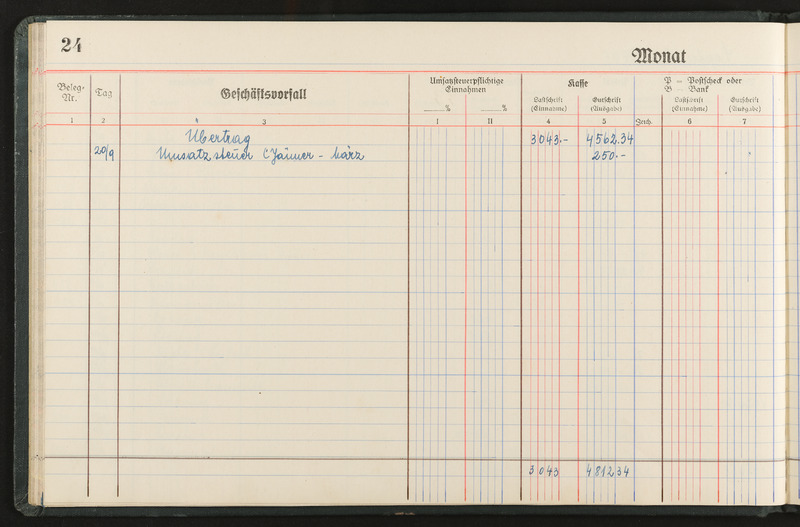 24
Monat
Beleg-
Nr.
Tag
Geschäftsvorfall
Umsatzsteuerpflichtige
Einnahmen
% %
Kasse
Lastschrift
(Einnahme)
Gutschrift
(Ausgabe)
P = Postscheck oder
B = Bank
Lastschrift
(Einnahme)
Gutschrift
(Ausgabe)
1 2 3 I II 4 5 Zeich. 6 7
Übertrag 3043.- 4562.34
20/9 Umsatzsteuer (Jänner - März 250.-
3043 4812 34